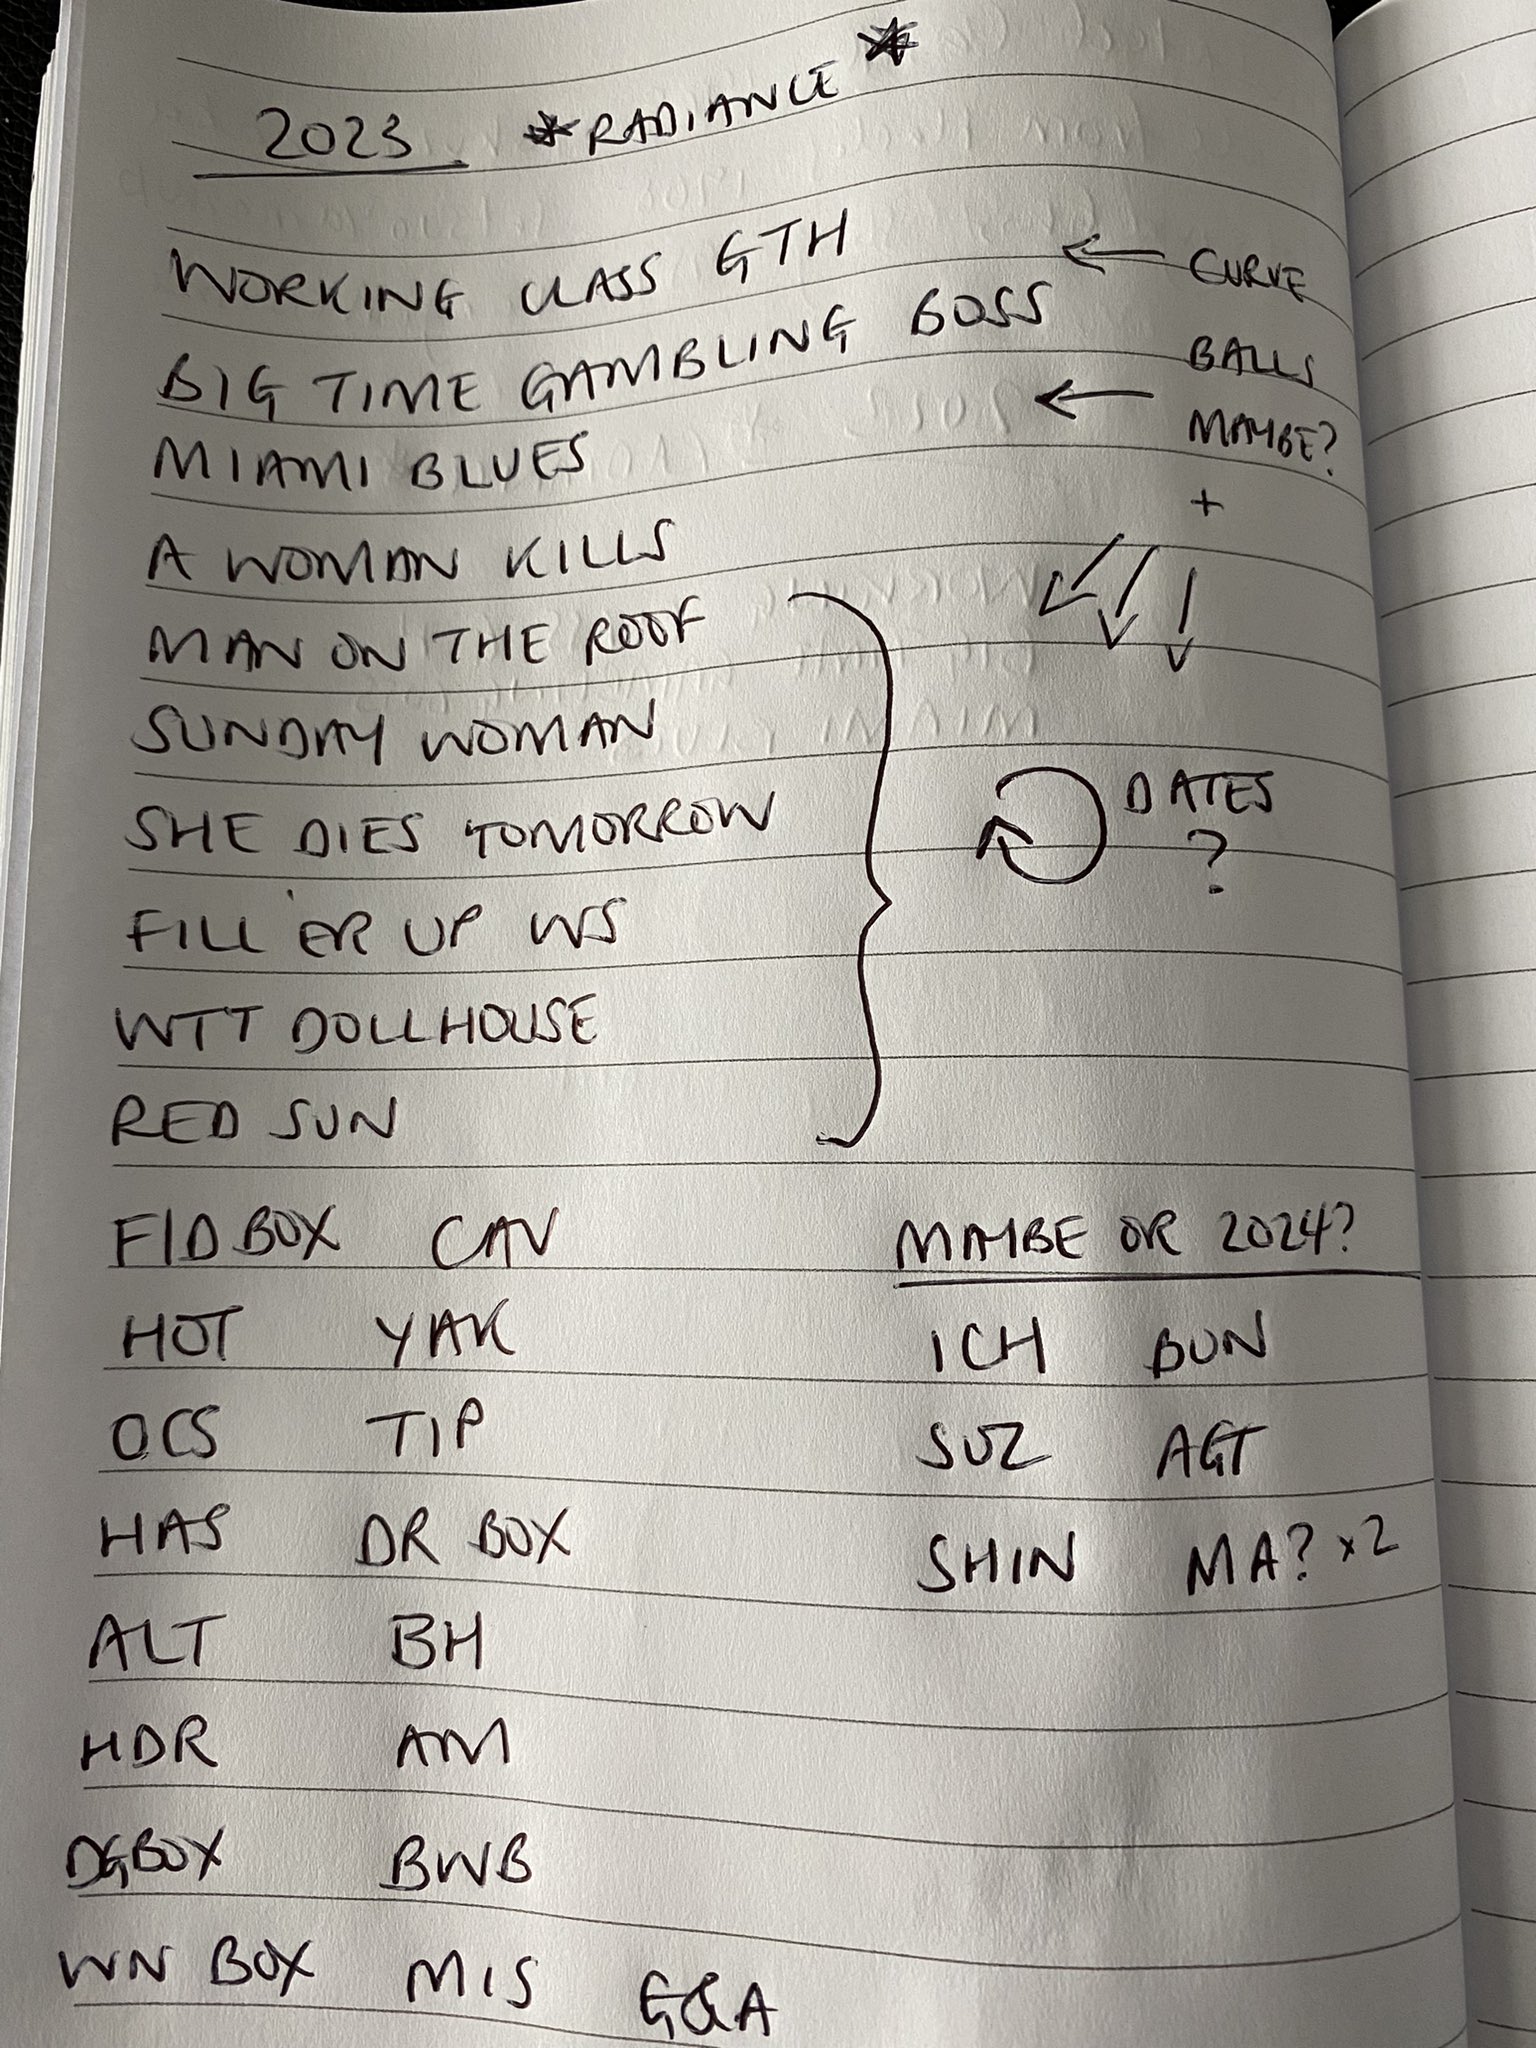 2023 *RADIANCE*
WORKING CLASS GTH
BIG TIME GAMBLING BOSS
MIAMI BLUES
A WOMAN KILLS
MAN ON THE ROOF
SUNDAY WOMAN
SHE DIES TOMORROW
FILL 'ER UP WS
WTT DOLLHOUSE
RED SUN
← CURVE
BALLS
← MAYBE?
+
DATES
?
FID BOX CAV
HOT YAK
OCS TIP
HAS DR BOX
ALT BH
HDR AM
DG BOX BWB
WN BOX MIS G&A
MAYBE OR 2024?
ICH BUN
SUZ AGT
SHIN MA? x2